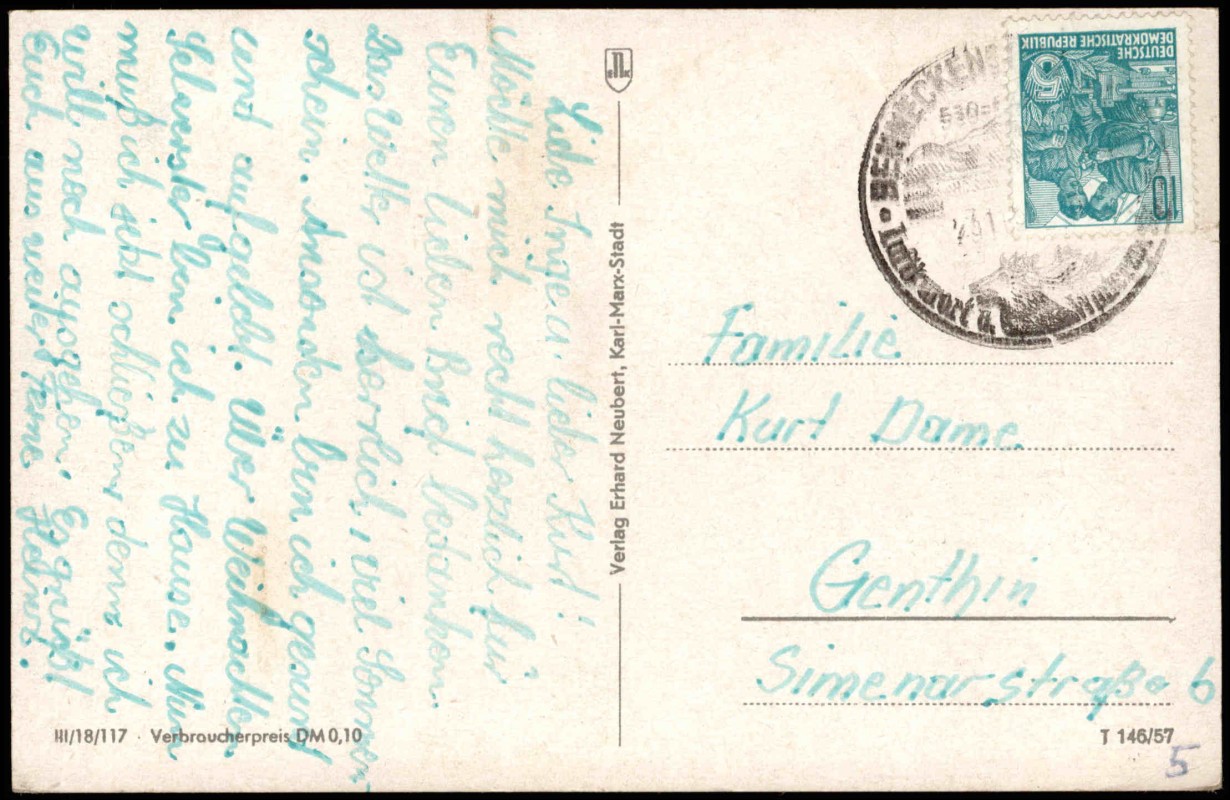 Liebe Inge u. lieber Kurt!
Möchte mich recht herzlich für
Euren lieben Brief bedanken.
Das Wetter ist herrlich, viel Sonnen-
schein. Ansonsten bin ich gesund
und aufgelebt. Über Weihnachten
Silvester bin ich zu Hause. Nun
muß ich jetzt schließen denn ich
will noch ausgehen. Es grüßt
Euch aus weiter Ferne
Verlag Erhard Neubert, Karl-Marx-Stadt
III/18/117 · Verbraucherpreis DM 0,10
DEUTSCHE
DEMOKRATISCHE REPUBLIK
5
10
BENNECKEN
530
Luftkurort u.
Familie
Kurt Dame
Genthin
Simenarstraße 6
T 146/57
5